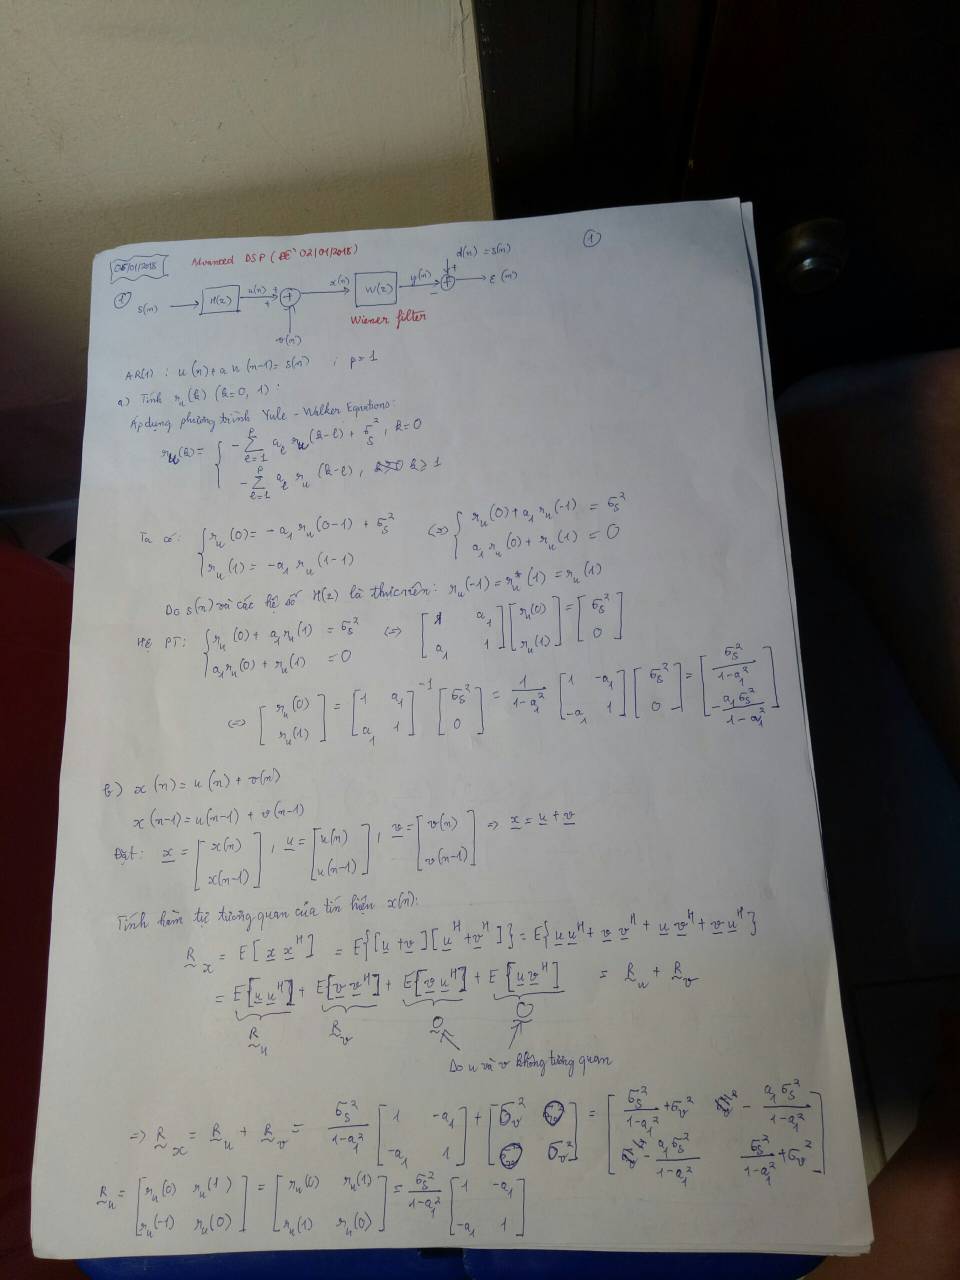 05/01/2018 Advanced DSP (ĐỀ 02/01/2018) ①
① s(n) → H(z) u(n) + + + x(n) W(z) y(n) - + + d(n) = s(n) ε(n)
v(n) Wiener filter
AR(1) : u(n) + a u(n-1) = s(n) ; p = 1
a) Tính r_u(k) (k=0, 1) :
Áp dụng phương trình Yule - Walker Equations:
r_u(k) = { -∑_{ℓ=1}^{p} a_ℓ r_u(k-ℓ) + σ_s², k=0
-∑_{ℓ=1}^{p} a_ℓ r_u(k-ℓ), k ≥ 1
Ta có: { r_u(0) = -a₁ r_u(0-1) + σ_s² ⇔ { r_u(0) + a₁ r_u(-1) = σ_s²
r_u(1) = -a₁ r_u(1-1) a₁ r_u(0) + r_u(1) = 0
Do s(n) và các hệ số H(z) là thực nên: r_u(-1) = r_u*(1) = r_u(1)
Hệ PT: { r_u(0) + a₁ r_u(1) = σ_s² ⇔ [1 a₁; a₁ 1] [r_u(0); r_u(1)] = [σ_s²; 0]
a₁ r_u(0) + r_u(1) = 0
⇔ [r_u(0); r_u(1)] = [1 a₁; a₁ 1]⁻¹ [σ_s²; 0] = 1/(1-a₁²) [1 -a₁; -a₁ 1] [σ_s²; 0] = [σ_s²/(1-a₁²); -a₁σ_s²/(1-a₁²)]
b) x(n) = u(n) + v(n)
x(n-1) = u(n-1) + v(n-1)
Đặt: x = [x(n); x(n-1)], u = [u(n); u(n-1)], v = [v(n); v(n-1)] ⇒ x = u + v
Tính hàm tự tương quan của tín hiệu x(n):
R_x = E[x x^H] = E{[u + v][u^H + v^H]} = E{u u^H + v v^H + u v^H + v u^H}
= E[u u^H] + E[v v^H] + E[v u^H] + E[u v^H] = R_u + R_v
R_u R_v 0 0
Do u và v không tương quan
⇒ R_x = R_u + R_v = σ_s²/(1-a₁²) [1 -a₁; -a₁ 1] + [σ_v² 0; 0 σ_v²] = [σ_s²/(1-a₁²) + σ_v² -a₁σ_s²/(1-a₁²); -a₁σ_s²/(1-a₁²) σ_s²/(1-a₁²) + σ_v²]
R_u = [r_u(0) r_u(1); r_u(-1) r_u(0)] = [r_u(0) r_u(1); r_u(1) r_u(0)] = σ_s²/(1-a₁²) [1 -a₁; -a₁ 1]